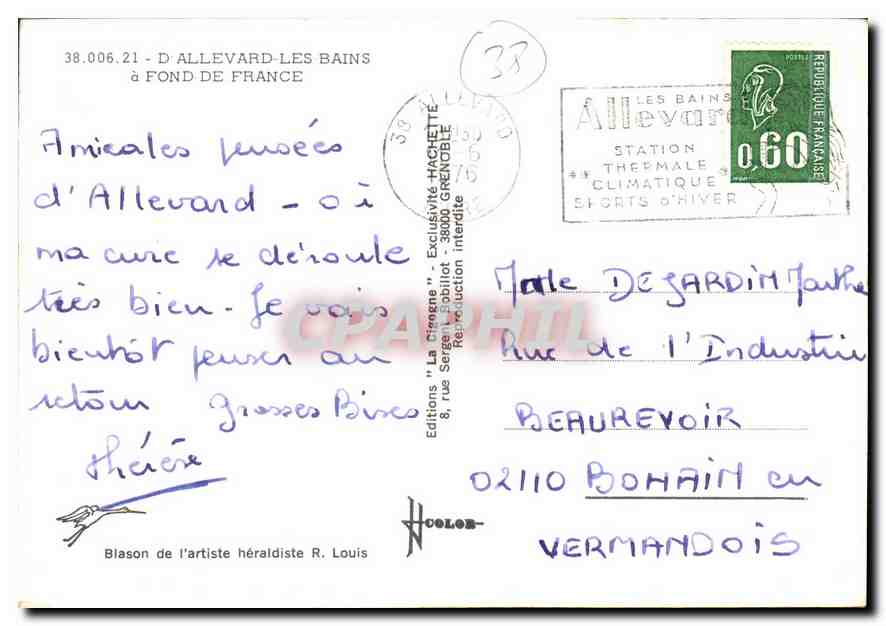 38.006.21 - D'ALLEVARD-LES BAINS
à FOND DE FRANCE
38
38 ALLEVARD
76
LES BAINS
Allevard
STATION
THERMALE
CLIMATIQUE
SPORTS d'HIVER
POSTES
REPUBLIQUE FRANÇAISE
0,60
Amicales pensées
d'Allevard - où
ma cure se déroule
très bien - Je vais
bientôt penser au
retour Grosses Bises
Thérèse
Editions "La Cigogne" - Exclusivité HACHETTE
8, rue Sergent Bobillot - 38000 GRENOBLE
Reproduction interdite
CPAPHIL
DEJARDIN Marthe
Rue de l'Industrie
BEAUREVOIR
02110 BOHAIN en
VERMANDOIS
COLOR
Blason de l'artiste héraldiste R. Louis